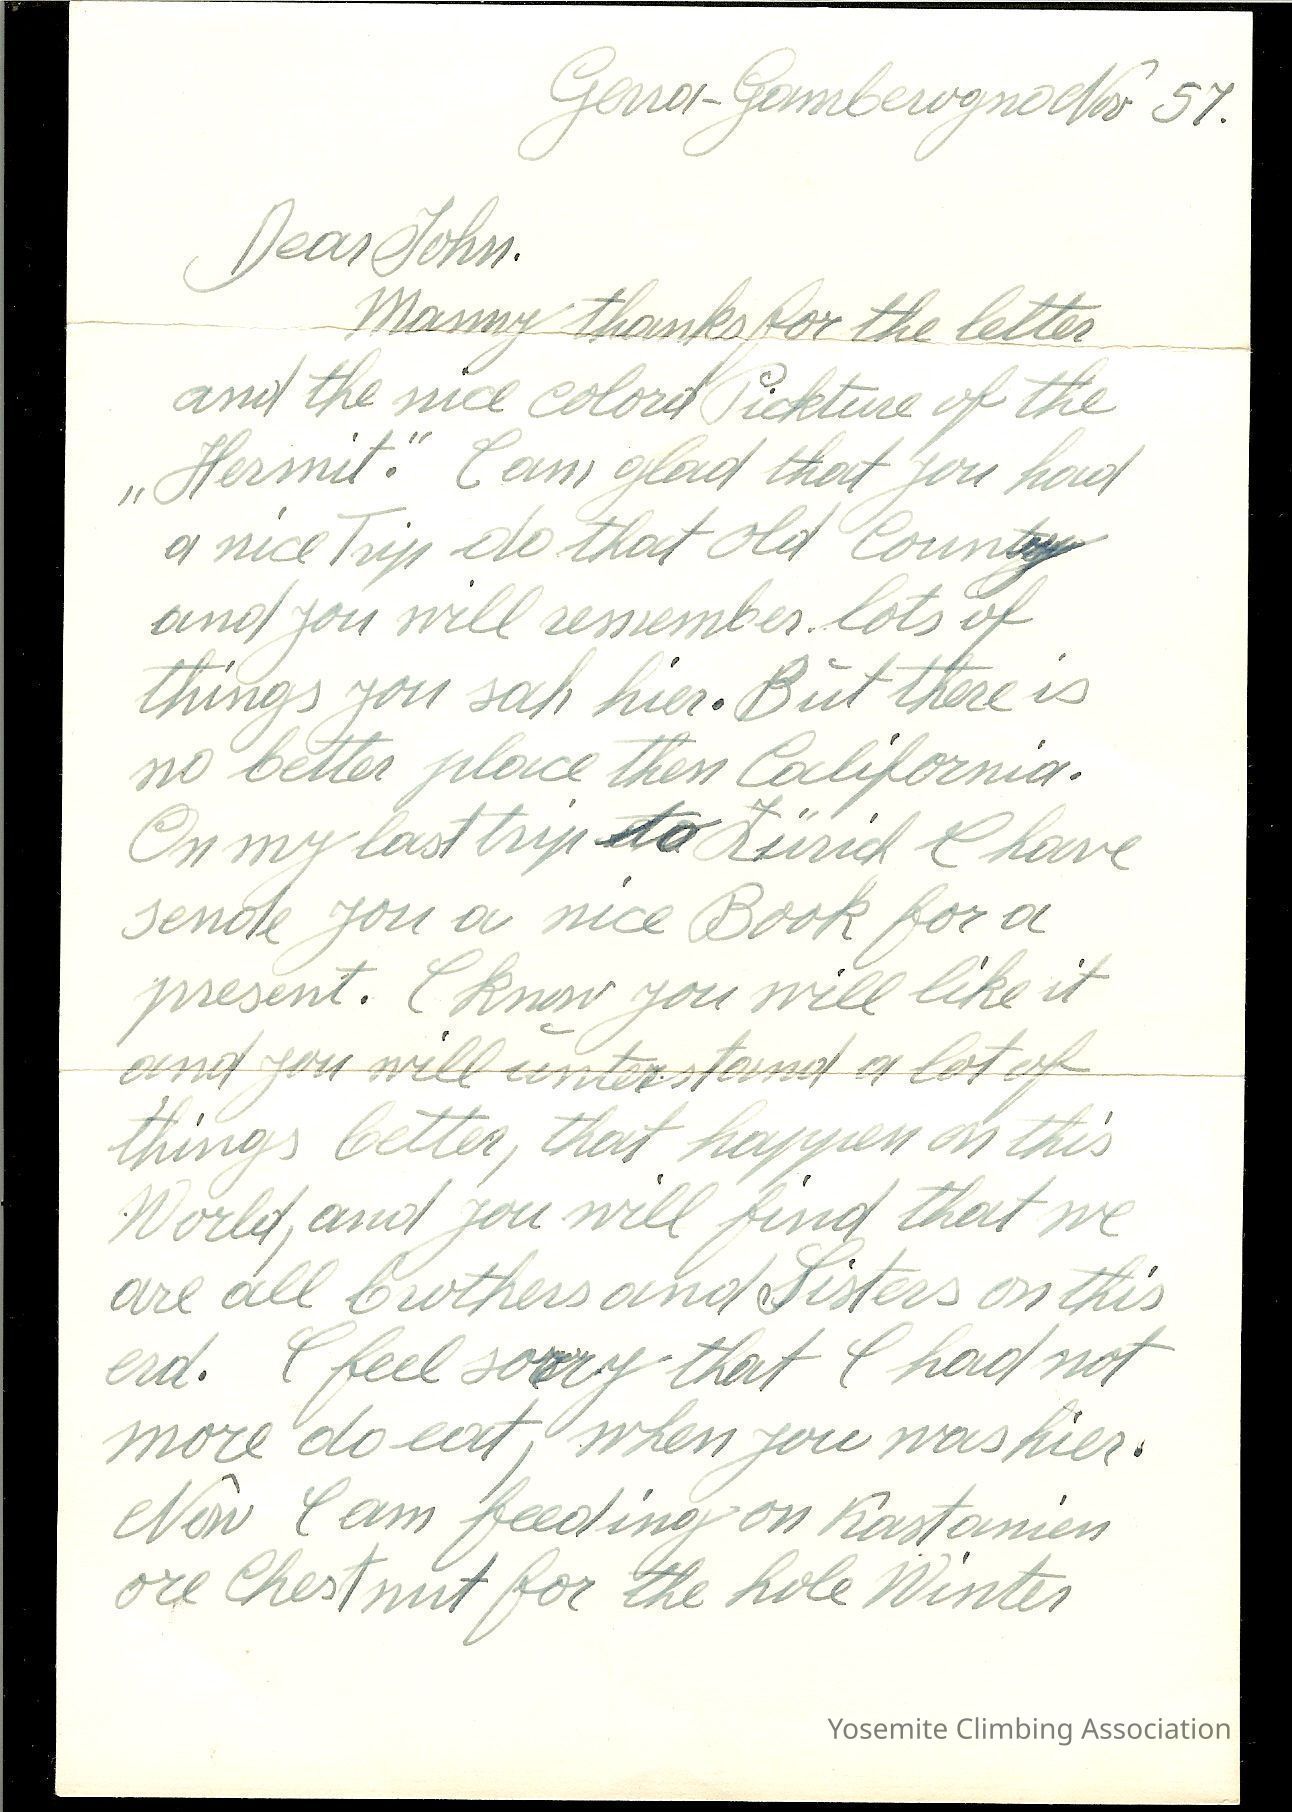 Gerra-Gambarogno Nov 57.
Dear John.
Manny thanks for the letter
and the nice colord Pickture of the
„Hermit." I am glad that you had
a nice Trip do that old Country
and you will remember lots of
things you sah hier. But there is
no better place then California.
On my last trip to Zürich I have
sende you a nice Book for a
present. I know you will like it
and you will unterstand a lot of
things better, that happen on this
World, and you will find that we
are all brothers and Sisters on this
erd. I feel sorry that I had not
more do eat, when you was hier.
Now I am feeding on Kastanien
ore Chestnut for the hole Winter
Yosemite Climbing Association